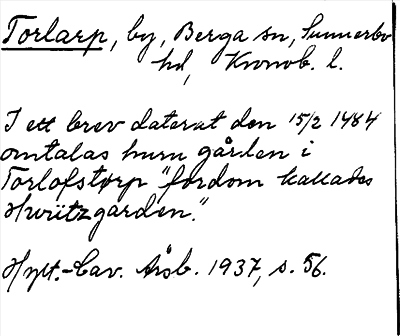 Torlarp, by, Berga sn, Sunnerbo
hd, Kronob. l.
I ett brev daterat den 15/2 1484
omtalas huru gården i
Torlofstorp "fordom kallades
Hwiitzgarden."
Hylt.-Cav. Årsb. 1937, s. 56.